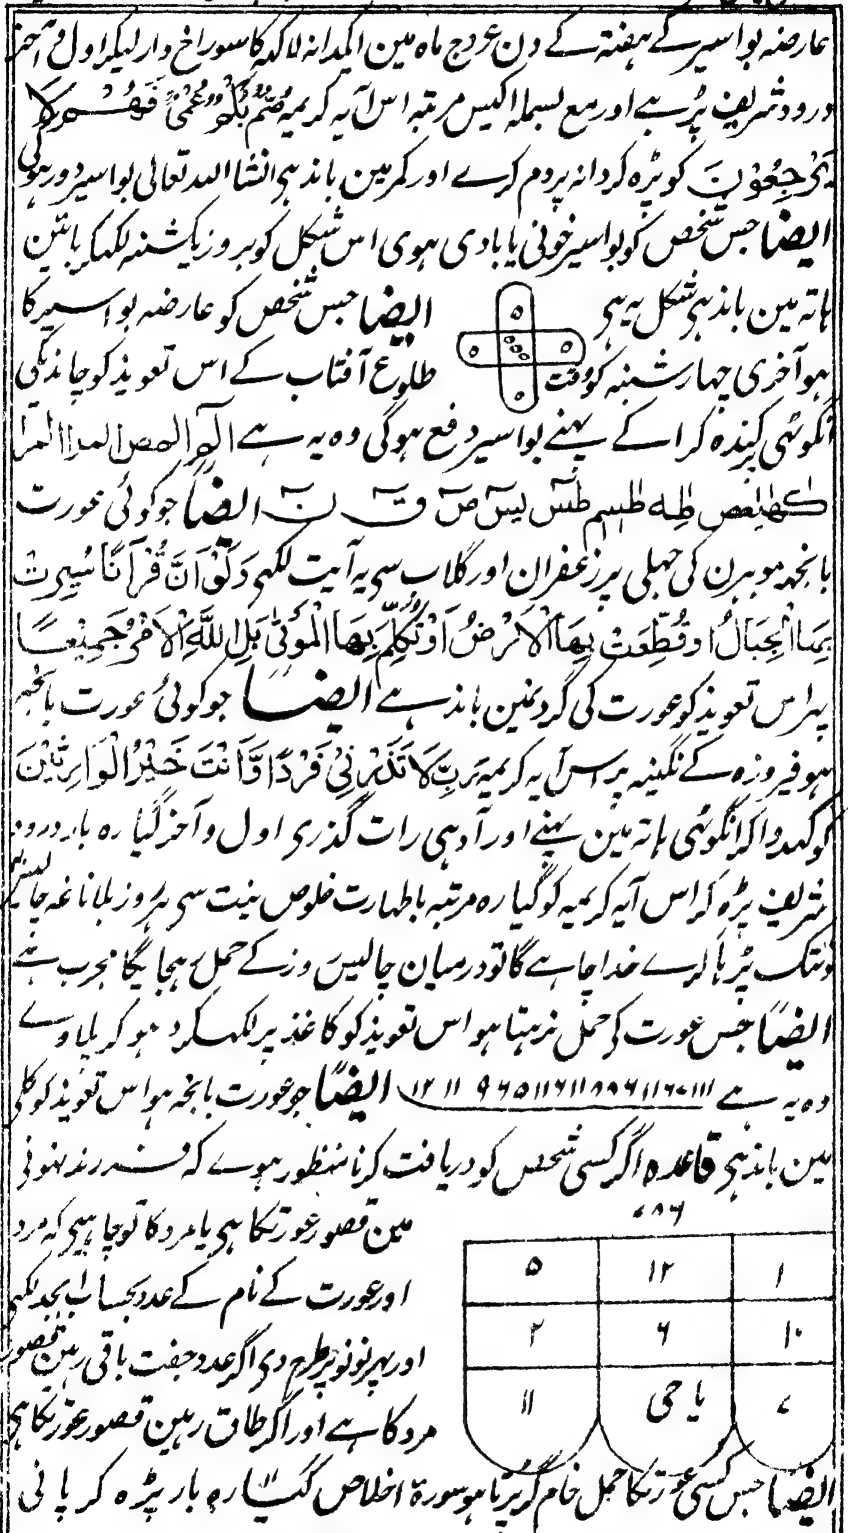 عارضہ بواسیر کے ہفتہ کے دن عروج ماہ مین اکیدانہ لاکھہ کا سوراخ دار لیکر اول و آخر
درود شریف پڑہے اور مع بسملہ اکیس مرتبہ اس آیہ کریمہ صُمٌّ بُكْمٌ عُمْىٌ فَهُمْ لَا
يَرْجِعُوْنَ کو پڑہ کر دانہ پر دم کرے اور کمر مین باندہی انشا اللہ تعالی بواسیر دور ہوگی
ایضا جس شخص کو بواسیر خونی یا بادی ہوی اس شکل کو بروز یکشنبہ لکھکر بائین
ہاتہ مین باندہی شکل یہ ہی ایضا جس شخص کو عارضہ بواسیر کا
ہو آخری چہار شنبہ کو وقت طلوع آفتاب کے اس تعویذ کو چاندیکی
انگوٹہی پر کندہ کرا کے پہنے بواسیر دفع ہوگی وہ یہ ہے الٓمٓ المص المرا المرا
کهیعص طه طسم طس یس ص ق ن ایضا جو کوئی عورت
بانجہہ ہو ہرن کی جہلی پر زعفران اور گلاب سی یہ آیت لکھی وَلَوْ اَنَّ قُرْاٰنًا سُيِّرَتْ
بِهِ الْجِبَالُ اَوْ قُطِّعَتْ بِهَا الْاَرْضُ اَوْ كُلِّمَ بِهَا الْمَوْتٰى بَلْ لِلّٰهِ الْاَمْرُ جَمِيْعًا
پہر اس تعویذ کو عورت کی گردنمین باندہے ایضا جو کوئی عورت بانجہہ
ہو فیروزہ کے نگینہ پر اس آیہ کریمہ رَبِّ لَا تَذَرْنِیْ فَرْدًا وَّ اَنْتَ خَيْرُ الْوَارِثِيْنَ
کو کہدوا کر انگوٹہی ہاتہ مین پہنے اور آدہی رات گذری اول و آخر گیارہ بار درود
شریف پڑہ کر اس آیہ کریمہ کو گیارہ مرتبہ باطہارت خلوص نیت سی ہر روز بلاناغہ چالیس
دنتک پڑہا کرے خدا چاہے گا تو درمیان چالیس روز کے حمل رہجائیگا مجرب ہے
ایضًا جس عورت کی حمل نرہتا ہو اس تعویذ کو کاغذ پر لکھکر دہو کر پلاوے
وہ یہ ہے ایضًا جو عورت بانجہ ہو اس تعویذ کو گلی
مین باندہی قاعدہ اگر کسی شخص کو دریافت کرنا منظور ہوے کہ فرزند نہونی
۷۸۶
مین قصور عورتکا ہی یا مرد کا تو چاہیی کہ مرد
اور عورت کے نام کے عدد بحساب ابجد لکھی
اور پہر نو نو پر طرح دی اگر عدد جفت باقی رہین قصور
مرد کا ہے اور اگر طاق رہین قصور عورتکا ہی
۱ ۱۲ ۵
۱۰ ۶ ۲
۷ یا حی ۱۱
ایضًا جس کسی عورتکا حمل خام گر پڑتا ہو سورۃ اخلاص گیارہ بار پڑہ کر پانی